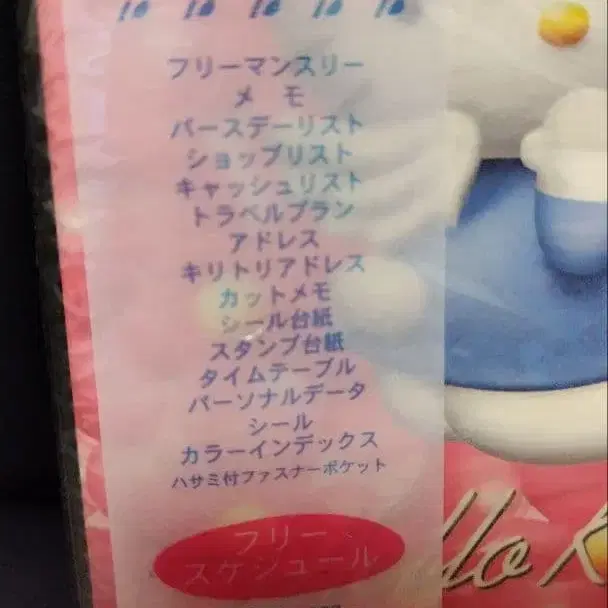 フリーマンスリー
メモ
バースデーリスト
ショップリスト
キャッシュリスト
トラベルプラン
アドレス
キリトリアドレス
カットメモ
シール台紙
スタンプ台紙
タイムテーブル
パーソナルデータ
シール
カラーインデックス
ハサミ付ファスナーポケット
フリー
スケジュール